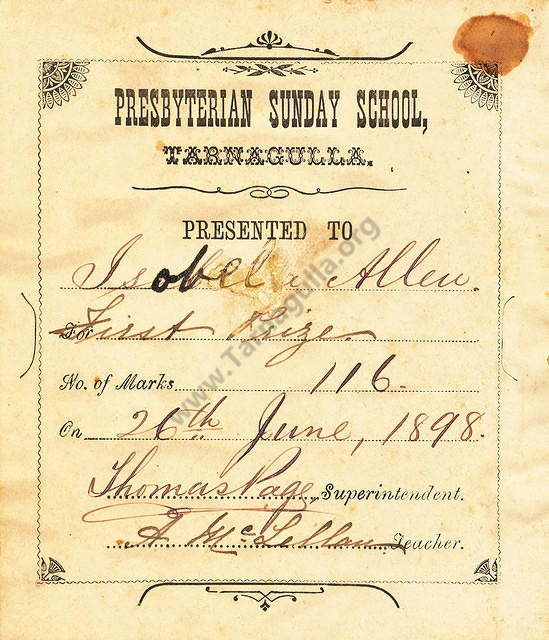 PRESBYTERIAN SUNDAY SCHOOL,
TARNAGULLA.
PRESENTED TO
Isobel Allen.
For First Prize
No. of Marks 116.
On 26th June, 1898.
Thomas Page Superintendent.
A McLellan Teacher.
www.Tarnagulla.org